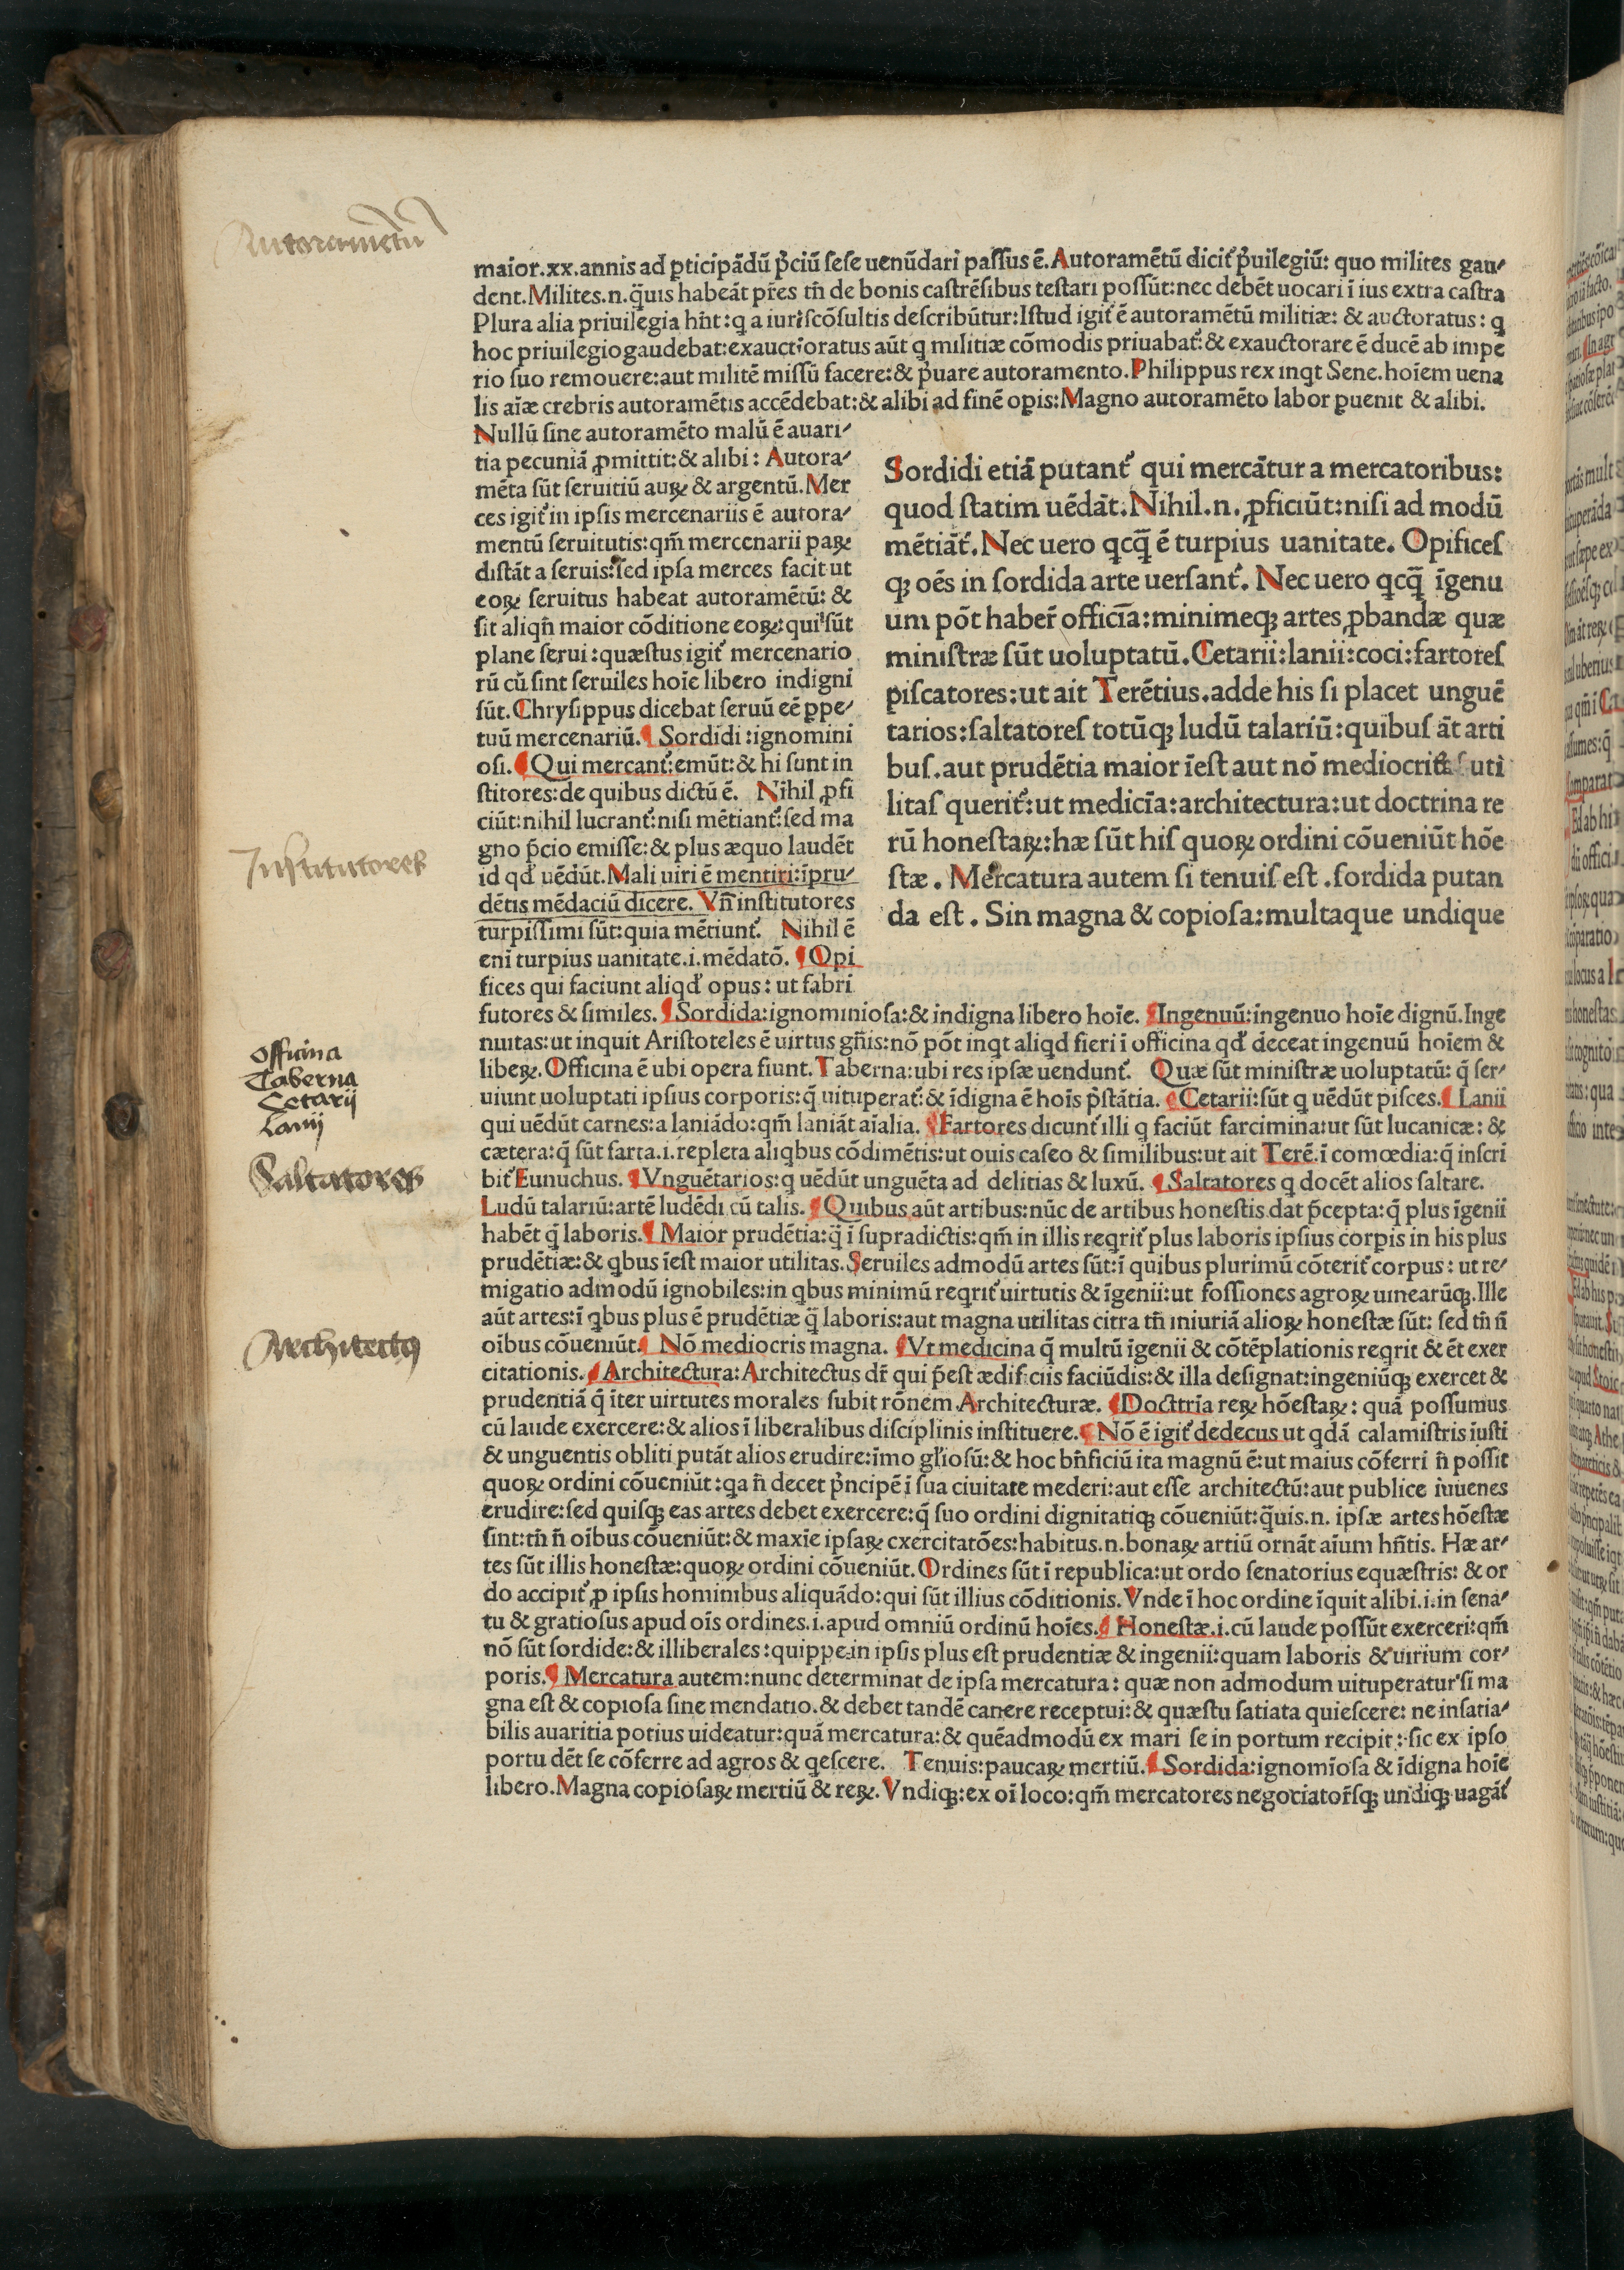 Autoramētū
maior.xx.annis ad ꝑticipādū p̄ciū ſeſe uenūdari paſſus ē. Autoramētū dicit᷑ p̄uilegiū: quo milites gau⸗
dent. Milites.n. q̄uis habeāt pr̄es tn̄ de bonis caſtrēſibus teſtari poſſūt: nec debēt uocari ī ius extra caſtra
Plura alia priuilegia hn̄t: q a iuriſcōſultis deſcribūtur: Iſtud igit᷑ ē autoramētū militiæ: & auctoratus: q
hoc priuilegio gaudebat: exauctioratus aūt q militiæ cōmodis priuabat᷑: & exauctorare ē ducē ab impe
rio ſuo remouere: aut militē miſſū facere: & p̄uare autoramento. Philippus rex inqt Sene. hoīem uena
lis aīæ crebris autoramētis accēdebat: & alibi ad finē opis: Magno autoramēto labor ꝑuenit & alibi.
Nullū ſine autoramēto malū ē auari⸗
tia pecuniā ꝓmittit: & alibi: Autora⸗
mēta ſūt ſeruitiū auꝝ & argentū. Mer
ces igit᷑ in ipſis mercenariis ē autora⸗
mentū ſeruitutis: qm̄ mercenarii paꝝ
diſtāt a ſeruis: ſed ipſa merces facit ut
eoꝝ ſeruitus habeat autoramētū: &
ſit aliqn̄ maior cōditione eoꝝ: qui ſūt
plane ſerui: quæſtus igit᷑ mercenario
rū cū ſint ſeruiles hoīe libero indigni
ſūt. Chryſippus dicebat ſeruū eē ꝑpe⸗
tuū mercenariū. ¶ Sordidi: ignomini
oſi. ¶ Qui mercant᷑: emūt: & hi ſunt in
ſtitores: de quibus dictū ē. Nihil ꝓfi
ciūt: nihil lucrant᷑: niſi mētiant᷑: ſed ma
gno p̄cio emiſſe: & plus æquo laudēt
id qd᷑ uēdūt. Mali uiri ē mentiri: īpru⸗
dētis mēdaciū dicere. Vn̄ inſtitutores
turpiſſimi ſūt: quia mētiunt᷑. Nihil ē
eni turpius uanitate.i. mēdatō. ¶ Opi
fices qui faciunt aliqd᷑ opus: ut fabri
Sordidi etiā putant᷑ qui mercātur a mercatoribus:
quod ſtatim uēdāt. Nihil.n. ꝓficiūt: niſi ad modū
mētiāt᷑. Nec uero qcq̄ ē turpius uanitate. Opifices
qꝫ oēs in ſordida arte uerſant᷑. Nec uero qcq̄ īgenu
um pōt haber̄ officīa: minimeqꝫ artes ꝓbandæ quæ
miniſtræ ſūt uoluptatū. Cetarii: lanii: coci: fartores
piſcatores: ut ait Terētius. adde his ſi placet unguē
tarios: ſaltatores totūqꝫ ludū talariū: quibuſ āt arti
buſ. aut prudētia maior īeſt aut nō mediocris uti
litaſ querit᷑: ut medicīa: architectura: ut doctrina re
rū honeſtaꝝ: hæ ſūt hiſ quoꝝ ordini cōueniūt hōe
ſtæ. Mercatura autem ſi tenuiſ eſt. ſordida putan
da eſt. Sin magna & copioſa: multaque undique
Inſtitutores
ſutores & ſimiles. ¶ Sordida: ignominioſa: & indigna libero hoīe. ¶ Ingenuū: ingenuo hoīe dignū. Inge
nuitas: ut inquit Ariſtoteles ē uirtus gn̄is: nō pōt inqt aliqd fieri ī officina qd᷑ deceat ingenuū hoīem &
libeꝝ. Officina ē ubi opera fiunt. Taberna: ubi res ipſæ uendunt᷑. Quæ ſūt miniſtræ uoluptatū: q̄ ſer⸗
uiunt uoluptati ipſius corporis: q̄ uituperat᷑: & īdigna ē hoīs p̄ſtātia. ¶ Cetarii: ſūt q uēdūt piſces. ¶ Lanii
qui uēdūt carnes: a laniādo: qm̄ laniāt aīalia. ¶ Fartores dicunt᷑ illi q faciūt farcimina: ut ſūt lucanicæ: &
cætera: q̄ ſūt farta.i. repleta aliqbus cōdimētis: ut ouis caſeo & ſimilibus: ut ait Terē. ī comœdia: q̄ inſcri
bit᷑ Eunuchus. ¶ Vnguētarios: q uēdūt unguēta ad delitias & luxū. ¶ Saltatores q docēt alios ſaltare.
Ludū talariū: artē ludēdi cū talis. ¶ Quibus aūt artibus: nūc de artibus honeſtis dat p̄cepta: q̄ plus īgenii
habēt q̄ laboris. ¶ Maior prudētia: q̄ ī ſupradictis: qm̄ in illis reqrit᷑ plus laboris ipſius corꝑis in his plus
prudētiæ: & qbus īeſt maior utilitas. Seruiles admodū artes ſūt: ī quibus plurimū cōterit᷑ corpus: ut re⸗
migatio admodū ignobiles: in qbus minimū reqrit᷑ uirtutis & īgenii: ut foſſiones agroꝝ uinearūqꝫ. Ille
aūt artes: ī qbus plus ē prudētiæ q̄ laboris: aut magna utilitas citra tn̄ iniuriā alioꝝ honeſtæ ſūt: ſed tn̄ n̄
oībus cōueniūt. ¶ Nō mediocris magna. ¶ Vt medicina q̄ multū īgenii & cōtēplationis reqrit & ēt exer
citationis. ¶ Architectura: Architectus dr̄ qui p̄eſt ædificiis faciūdis: & illa deſignat: ingeniūqꝫ exercet &
prudentiā q̄ īter uirtutes morales ſubit rōnem Architecturæ. ¶ Docttria reꝝ hōeſtaꝝ: quā poſſumus
cū laude exercere: & alios ī liberalibus diſciplinis inſtituere. ¶ Nō ē igit᷑ dedecus ut qdā calamiſtris iuſti
& unguentis obliti putāt alios erudire: īmo gl̄ioſū: & hoc bn̄ficiū ita magnū ē: ut maius cōferri n̄ poſſit
quoꝝ ordini cōueniūt: qa n̄ decet p̄ncipē ī ſua ciuitate mederi: aut eſſe architectū: aut publice iuuenes
erudire: ſed quiſqꝫ eas artes debet exercere: q̄ ſuo ordini dignitatiqꝫ cōueniūt: q̄uis.n. ipſæ artes hōeſtæ
ſint: tn̄ n̄ oībus cōueniūt: & maxīe ipſaꝝ cxercitatōes: habitus.n. bonaꝝ artiū ornāt aīum hn̄tis. Hæ ar⸗
tes ſūt illis honeſtæ: quoꝝ ordini cōueniūt. Ordines ſūt ī republica: ut ordo ſenatorius equæſtris: & or
do accipit᷑ ꝓ ipſis hominibus aliquādo: qui ſūt illius cōditionis. Vnde ī hoc ordine īquit alibi.i. in ſena⸗
tu & gratioſus apud oīs ordines.i. apud omniū ordinū hoīes. ¶ Honeſtæ.i. cū laude poſſūt exerceri: qm̄
nō ſūt ſordide: & illiberales: quippe in ipſis plus eſt prudentiæ & ingenii: quam laboris & uirium cor⸗
poris. ¶ Mercatura autem: nunc determinat de ipſa mercatura: quæ non admodum uituperatur ſi ma
gna eſt & copioſa ſine mendatio. & debet tandē canere receptui: & quæſtu ſatiata quieſcere: ne inſatia⸗
bilis auaritia potius uideatur: quā mercatura: & quēadmodū ex mari ſe in portum recipit: ſic ex ipſo
portu dēt ſe cōferre ad agros & qeſcere. Tenuis: paucaꝝ mertiū. ¶ Sordida: ignomīoſa & īdigna hoīe
libero. Magna copioſaꝝ mertiū & reꝝ. Vndiqꝫ: ex oī loco: qm̄ mercatores negociator̄ſqꝫ undiqꝫ uagāt᷑
Officina
Taberna
Cetarij
Lanij
Saltatores
Architectꝰ